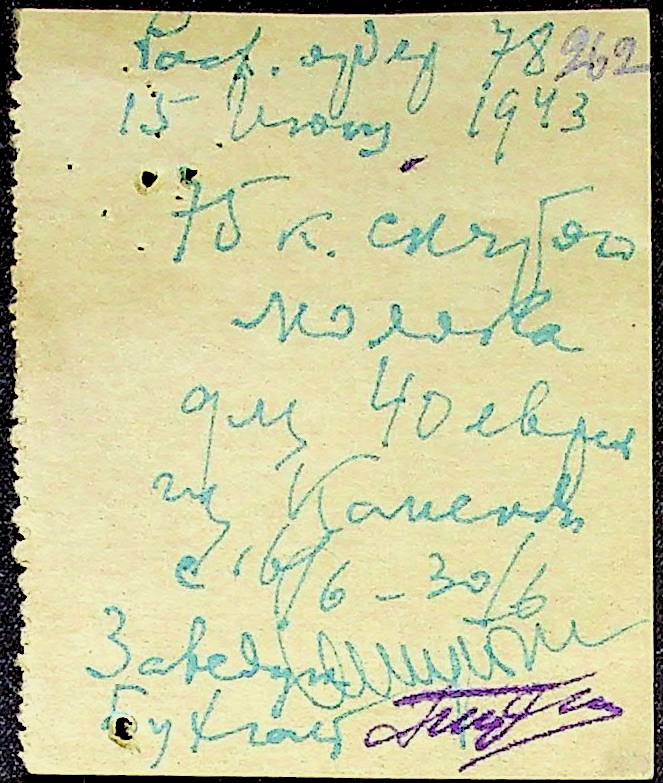 Расх. ордер 78 262
15 Июня 1943
75 к. снятого
молока
для 40 евреи
из Каменк
с 16/6 - 30/6
Заведую
Бухгалт